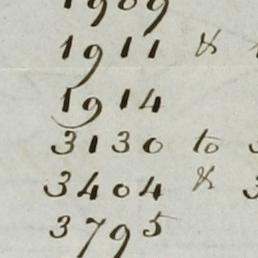 1909
1911 &
1914
3130 to 3
3404 & 3
3795